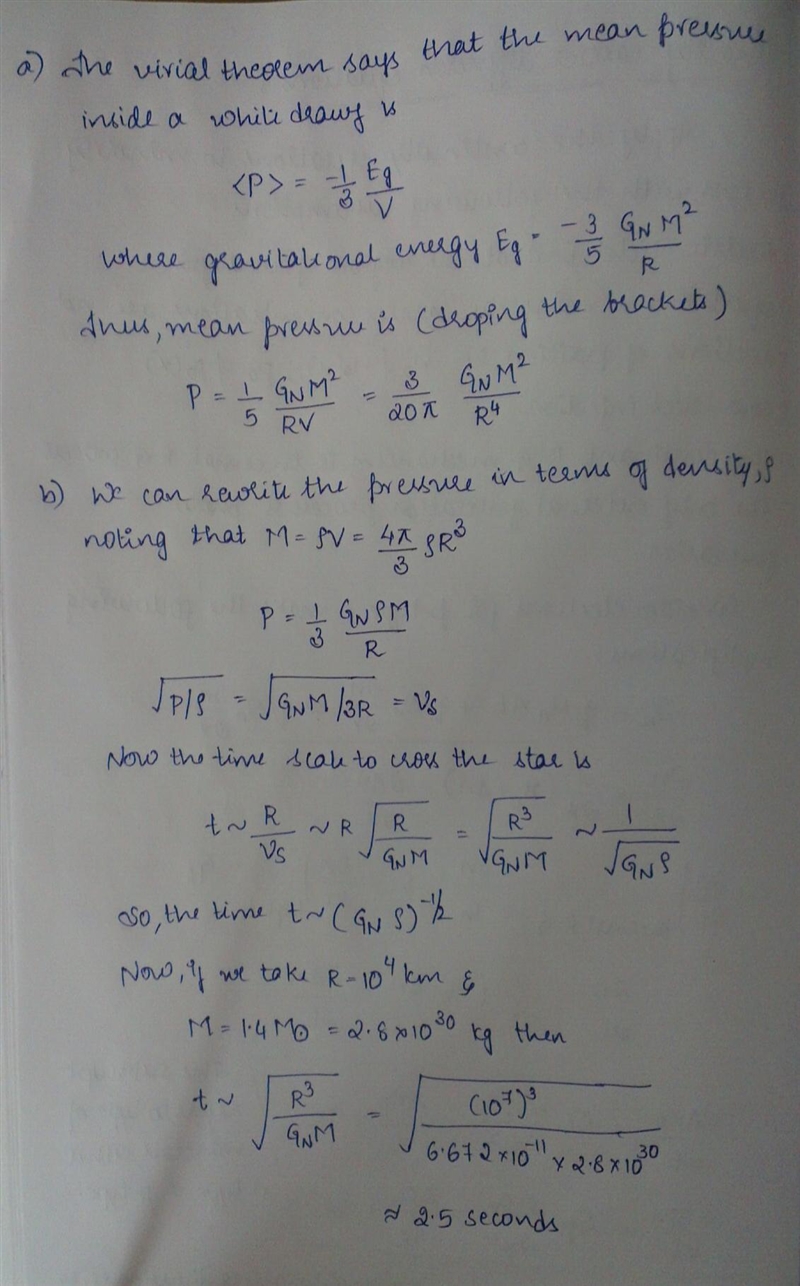 a) The virial theorem says that the mean pressure
inside a white drawf is
<P> = -1/3 Eg/V
where gravitational energy Eg = -3/5 G_N M²/R
Thus, mean pressure is (droping the brackets)
P = 1/5 G_N M²/RV = 3/20π G_N M²/R⁴
b) We can rewrite the pressure in terms of density, ρ
noting that M = ρV = 4π/3 ρR³
P = 1/3 G_N ρM/R
√(P/ρ) = √(G_N M/3R) = v_s
Now the time scale to cross the star is
t ~ R/v_s ~ R √(R/G_N M) = √(R³/G_N M) ~ 1/√(G_N ρ)
So, the time t ~ (G_N ρ)^(-1/2)
Now, if we take R = 10⁴ km &
M = 1.4 M⊙ = 2.8 × 10³⁰ kg then
t ~ √(R³/G_N M) = √((10⁷)³/(6.672 × 10⁻¹¹ × 2.8 × 10³⁰))
≈ 2.5 seconds